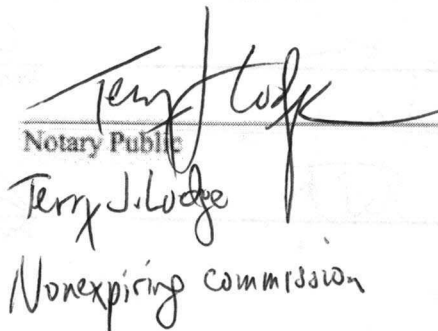 Terry J Lodge
Notary Public
Terry J. Lodge
Nonexpiring commission